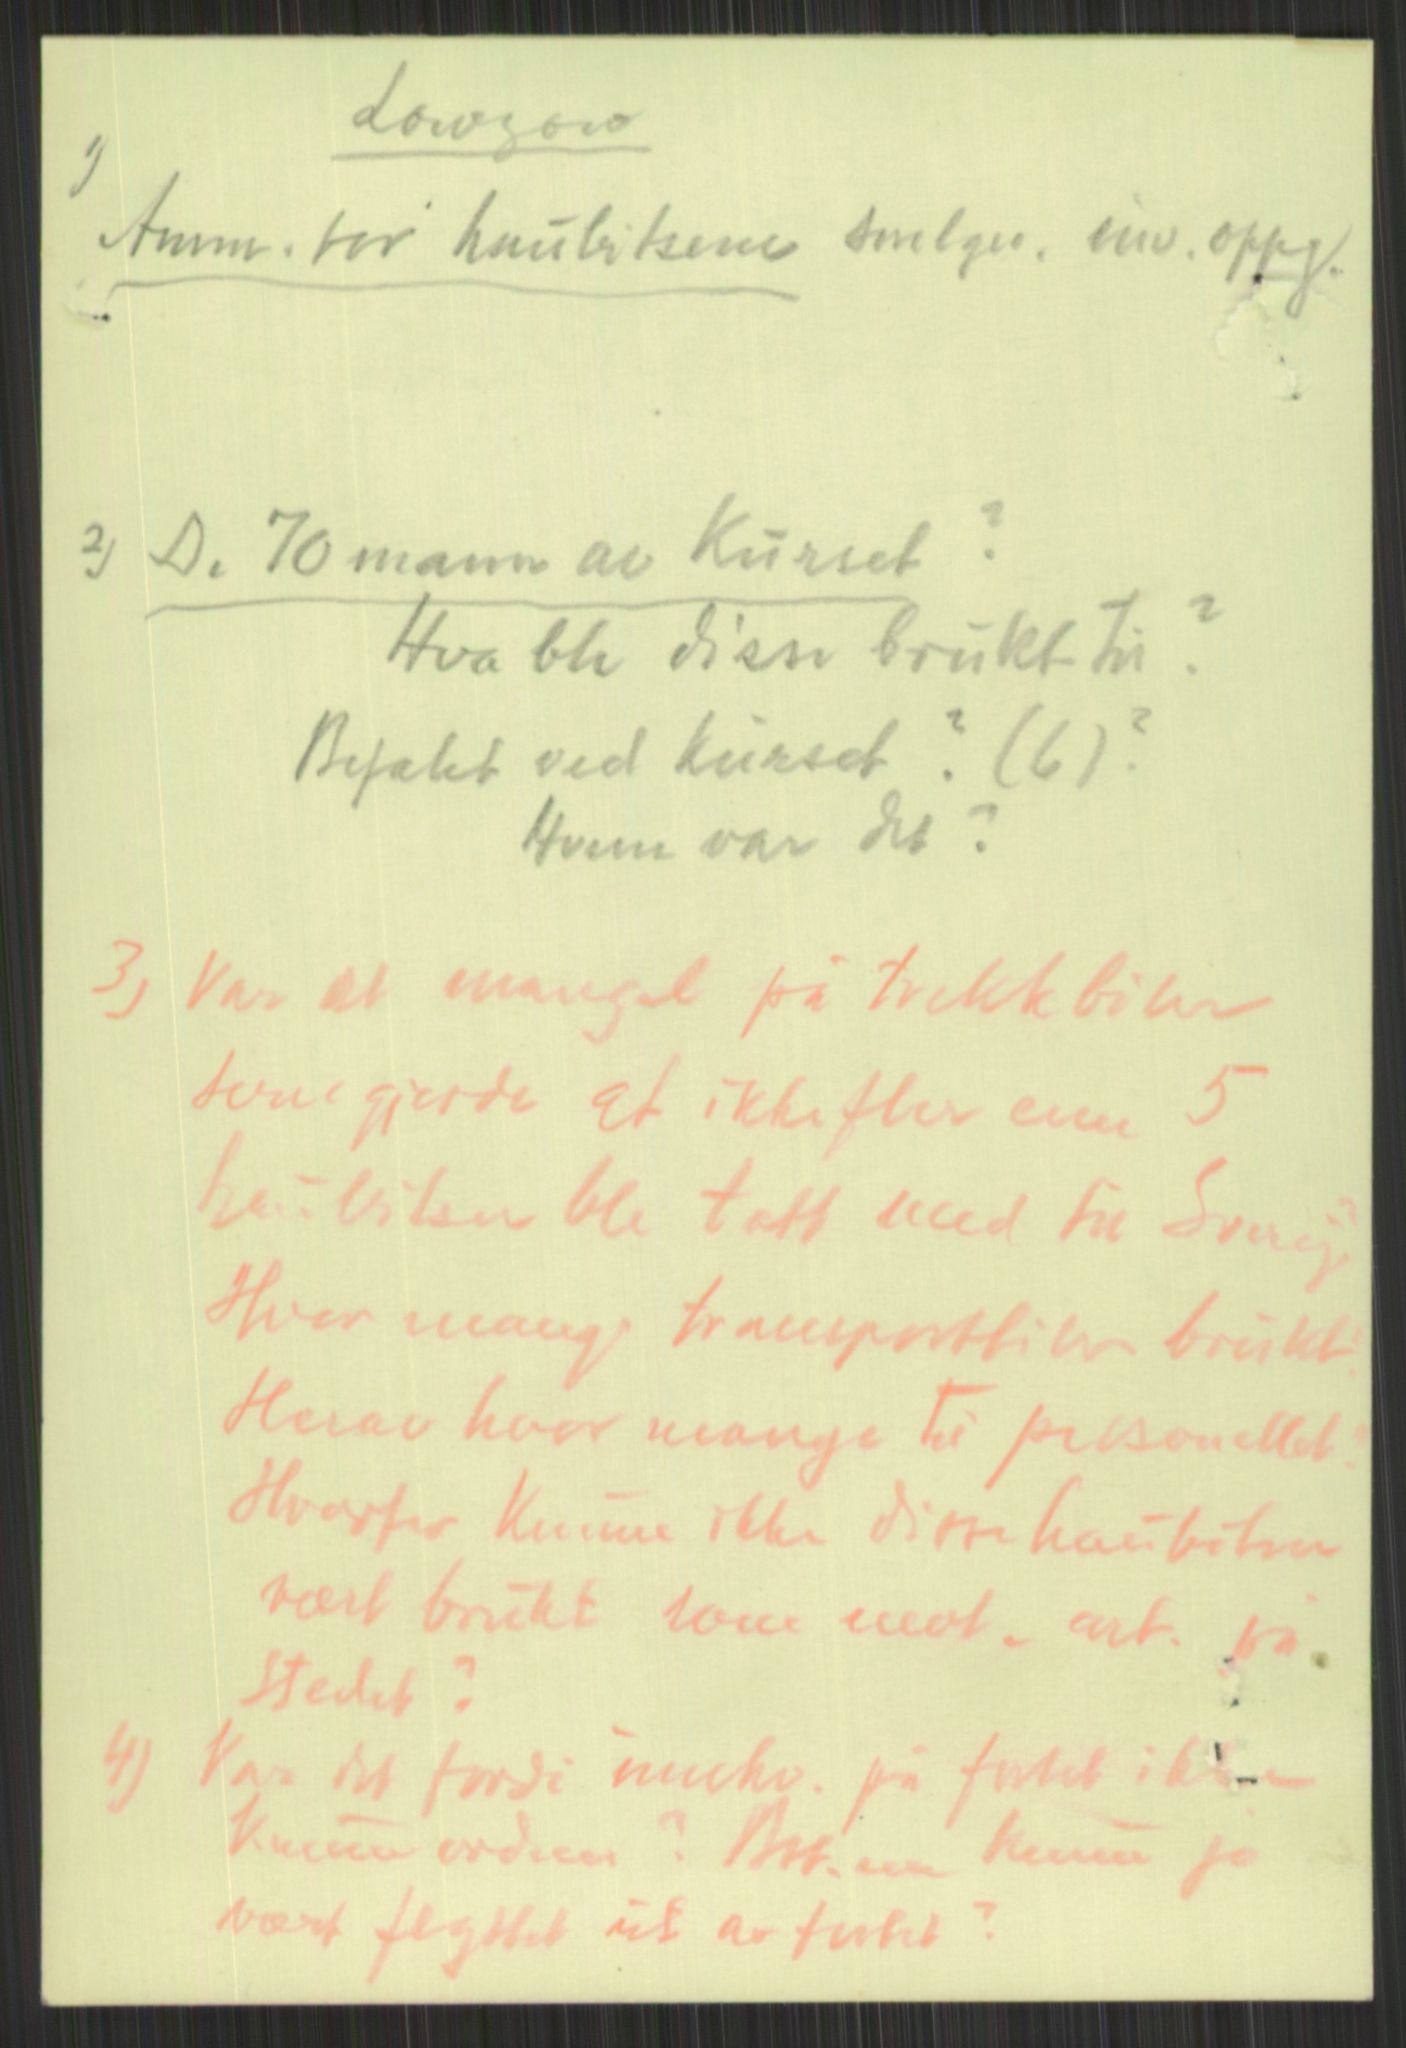 Lowzow
1)
Amm. for haubitsene iflg. inv. oppg.
2) De 70 mann av Kurset ?
Hva ble disse brukt til ?
Befalet ved kurset ? (6) ?
Hvem var det ?
3) Var det mangel på trekkbiler
som gjorde at ikke fler enn 5
haubitser ble tatt med til Sverige
Hvor mange transportbiler brukt ?
Herav hvor mange til personellet ?
Hvorfor kunne ikke disse haubitser
vært brukt som mot. art. på
stedet ?
4) Var det fordi på fortet ikke
kunne ordnes ? Batt.en kunne jo
vært flyttet ut av fortet ?